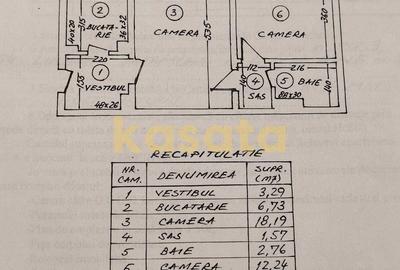 2
BUCATA-
RIE
3
CAMERA
6
CAMERA
40x20
315
36x32
535
360
220
1
VESTIBUL
155
48x26
112
216
140
4
SAS
5
BAIE
88x30
140
kasata
RECAPITULATIE
NR. CAM. DENUMIREA SUPR. (m2)
1 VESTIBUL 3,29
2 BUCATARIE 6,73
3 CAMERA 18,19
4 SAS 1,57
5 BAIE 2,76
6 CAMERA 12,24